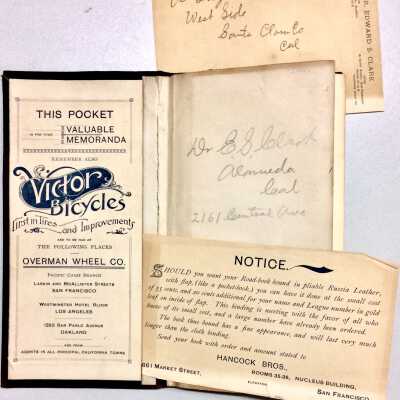 West Side
Santa Clara Co
Cal
EDWARD S. CLARK
THIS POCKET
IS FOR YOUR
VALUABLE
MEMORANDA
REMEMBER ALSO
Victor
Bicycles
first in tires and Improvements
ARE TO BE HAD AT
THE FOLLOWING PLACES
OVERMAN WHEEL CO.
PACIFIC COAST BRANCH
LARKIN AND MCALLISTER STREETS
SAN FRANCISCO
WESTMINSTER HOTEL BLOCK
LOS ANGELES
1250 SAN PABLO AVENUE
OAKLAND
AND FROM
AGENTS IN ALL PRINCIPAL CALIFORNIA TOWNS
Dr E S Clark
Alameda
Cal
2161 Central Ave
NOTICE.
SHOULD you want your Road-book bound in pliable Russia Leather,
with flap, (like a pocket-book,) you can have it done at the small cost
of 35 cents, and 10 cents additional for your name and League number in gold
leaf on inside of flap. This binding is meeting with the favor of all who
know of its small cost, and a large number have already been ordered.
The book thus bound has a fine appearance, and will last very much
longer than the cloth binding.
Send your book with order and amount stated to
HANCOCK BROS.,
ROOMS 35-36, NUCLEUS BUILDING,
661 MARKET STREET,
ELEVATOR
SAN FRANCISCO